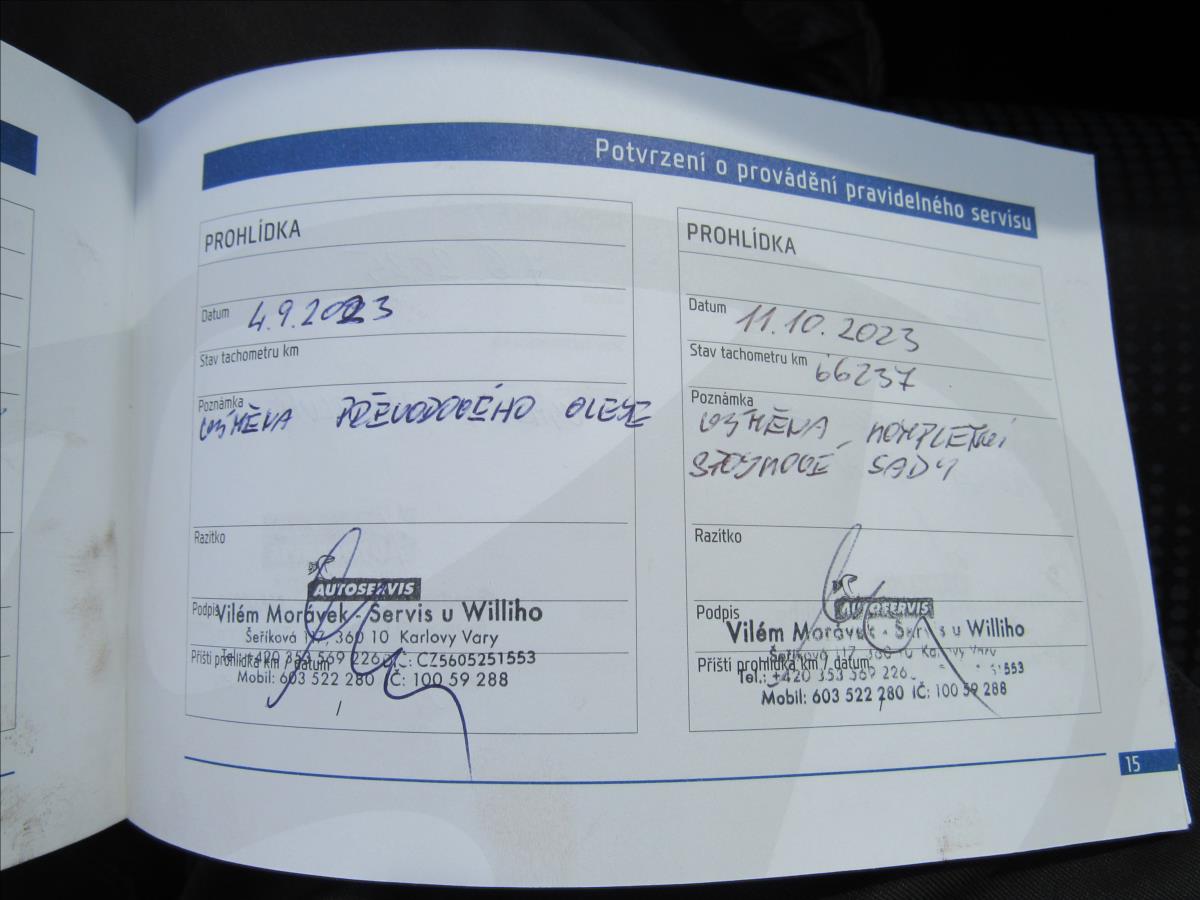 Potvrzení o provádění pravidelného servisu
PROHLÍDKA
Datum 4.9.2023
Stav tachometru km
Poznámka
VÝMĚNA PŘEVODOVÉHO OLEJE
Razítko
AUTOSERVIS
Podpis
Vilém Morávek - Servis u Williho
Šeříková 117, 360 10 Karlovy Vary
Tel.: +420 353 569 226 DIČ: CZ5605251553
Příští prohlídka km / datum
Mobil: 603 522 280 IČ: 100 59 288
/
PROHLÍDKA
Datum 11.10.2023
Stav tachometru km 66237
Poznámka
VÝMĚNA KOMPLETNÍ
SPOJKOVÉ SADY
Razítko
AUTOSERVIS
Podpis
Vilém Morávek - Servis u Williho
Šeříková 117, 360 10 Karlovy Vary
Příští prohlídka km / datum
Tel.: +420 353 569 226
Mobil: 603 522 280 IČ: 100 59 288
15